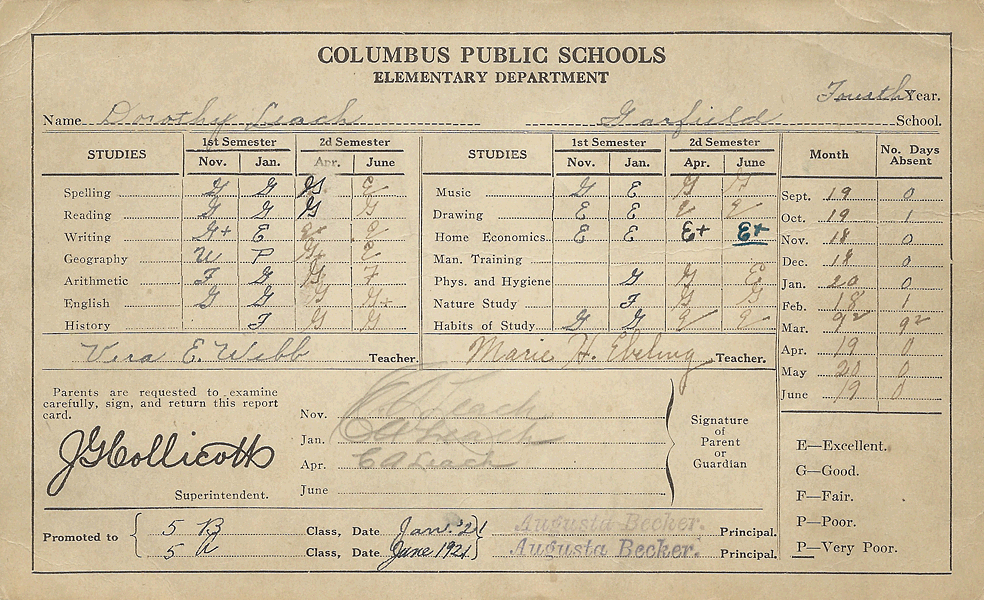 COLUMBUS PUBLIC SCHOOLS
ELEMENTARY DEPARTMENT
Fourth Year.
Name Dorothy Leach Garfield School.
STUDIES 1st Semester 2d Semester
Nov. Jan. Apr. June
Spelling G G G E
Reading G G G G
Writing G+ E
Geography U P G+ E
Arithmetic F G G F
English G G G G+
History F G G
Vera E. Webb Teacher.
STUDIES 1st Semester 2d Semester
Nov. Jan. Apr. June
Music G E G G
Drawing E E
Home Economics E E E+ E+
Man. Training
Phys. and Hygiene G G E
Nature Study F G G
Habits of Study G G
Marie H. Ebeling Teacher.
Month No. Days Absent
Sept. 19 0
Oct. 19 1
Nov. 18 0
Dec. 18 0
Jan. 20 0
Feb. 18 1
Mar.
Apr. 19 0
May 20 0
June 19 0
Parents are requested to examine
carefully, sign, and return this report
card.
JG Collicott
Superintendent.
Nov. Leach
Jan. CA Leach
Apr. CA Leach
June
Signature
of
Parent
or
Guardian
E—Excellent.
G—Good.
F—Fair.
P—Poor.
P—Very Poor.
Promoted to
5 B Class, Date Jan. '21 Augusta Becker. Principal.
5 A Class, Date June 1921 Augusta Becker. Principal.